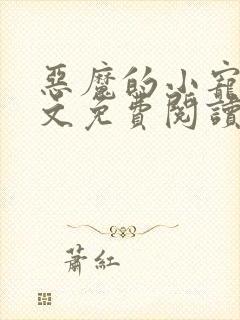 惡魔的小寵
文免費閱讀
蕭紅